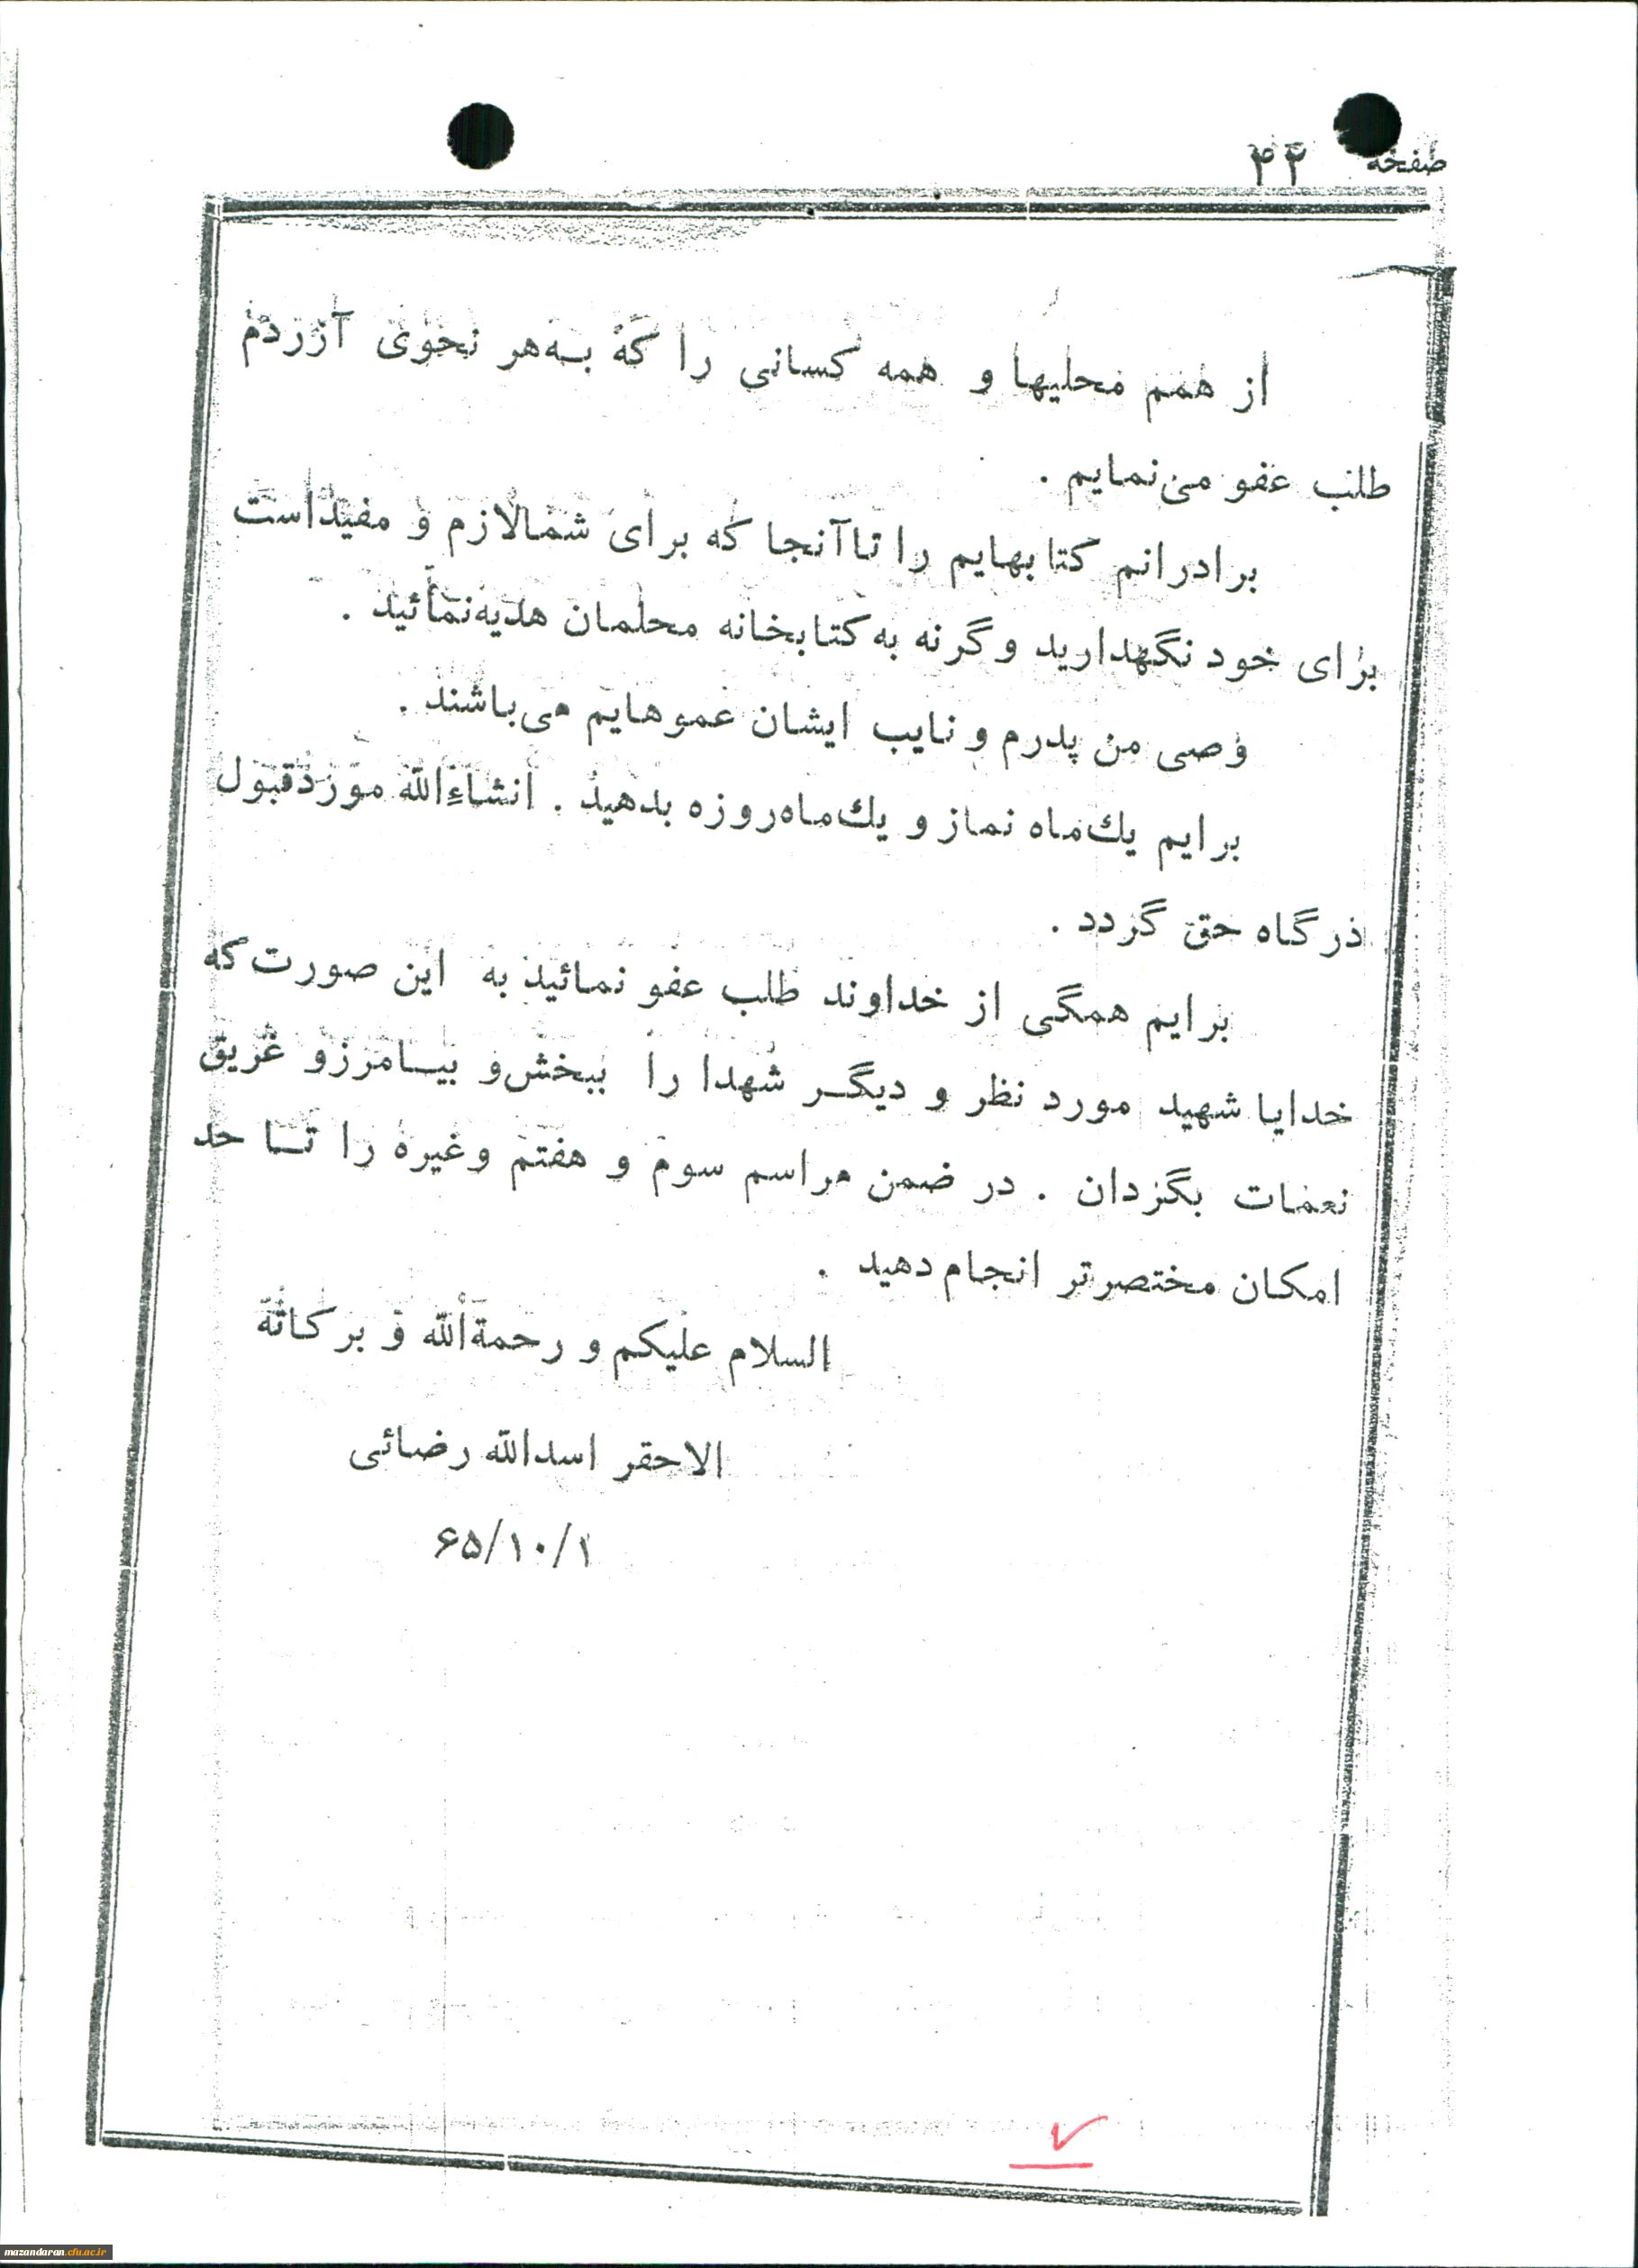 صفحه ۴۲
از همم محلیها و همه کسانی را که به‌هر نحوی آزردم
طلب عفو می‌نمایم .
برادرانم کتابهایم را تاآنجا که برای شمالازم و مفیداست
برای خود نگهدارید وگرنه به‌کتابخانه محلمان هدیه‌نمائید .
وصی من پدرم و نایب ایشان عموهایم می‌باشند .
برایم یك‌ماه نماز و یك‌ماه‌روزه بدهید . انشاءالله موردقبول
درگاه حق گردد .
برایم همگی از خداوند طلب عفو نمائید به این صورت‌که
خدایا شهید مورد نظر و دیگر شهدا را ببخش‌و بیامرزو غریق
نعمات بگردان . در ضمن مراسم سوم و هفتم وغیره را تا حد
امکان مختصرتر انجام‌دهید .
السلام علیکم و رحمةالله و برکاته
الاحقر اسدالله رضائی
۶۵/۱۰/۱
mazandaran.cfu.ac.ir